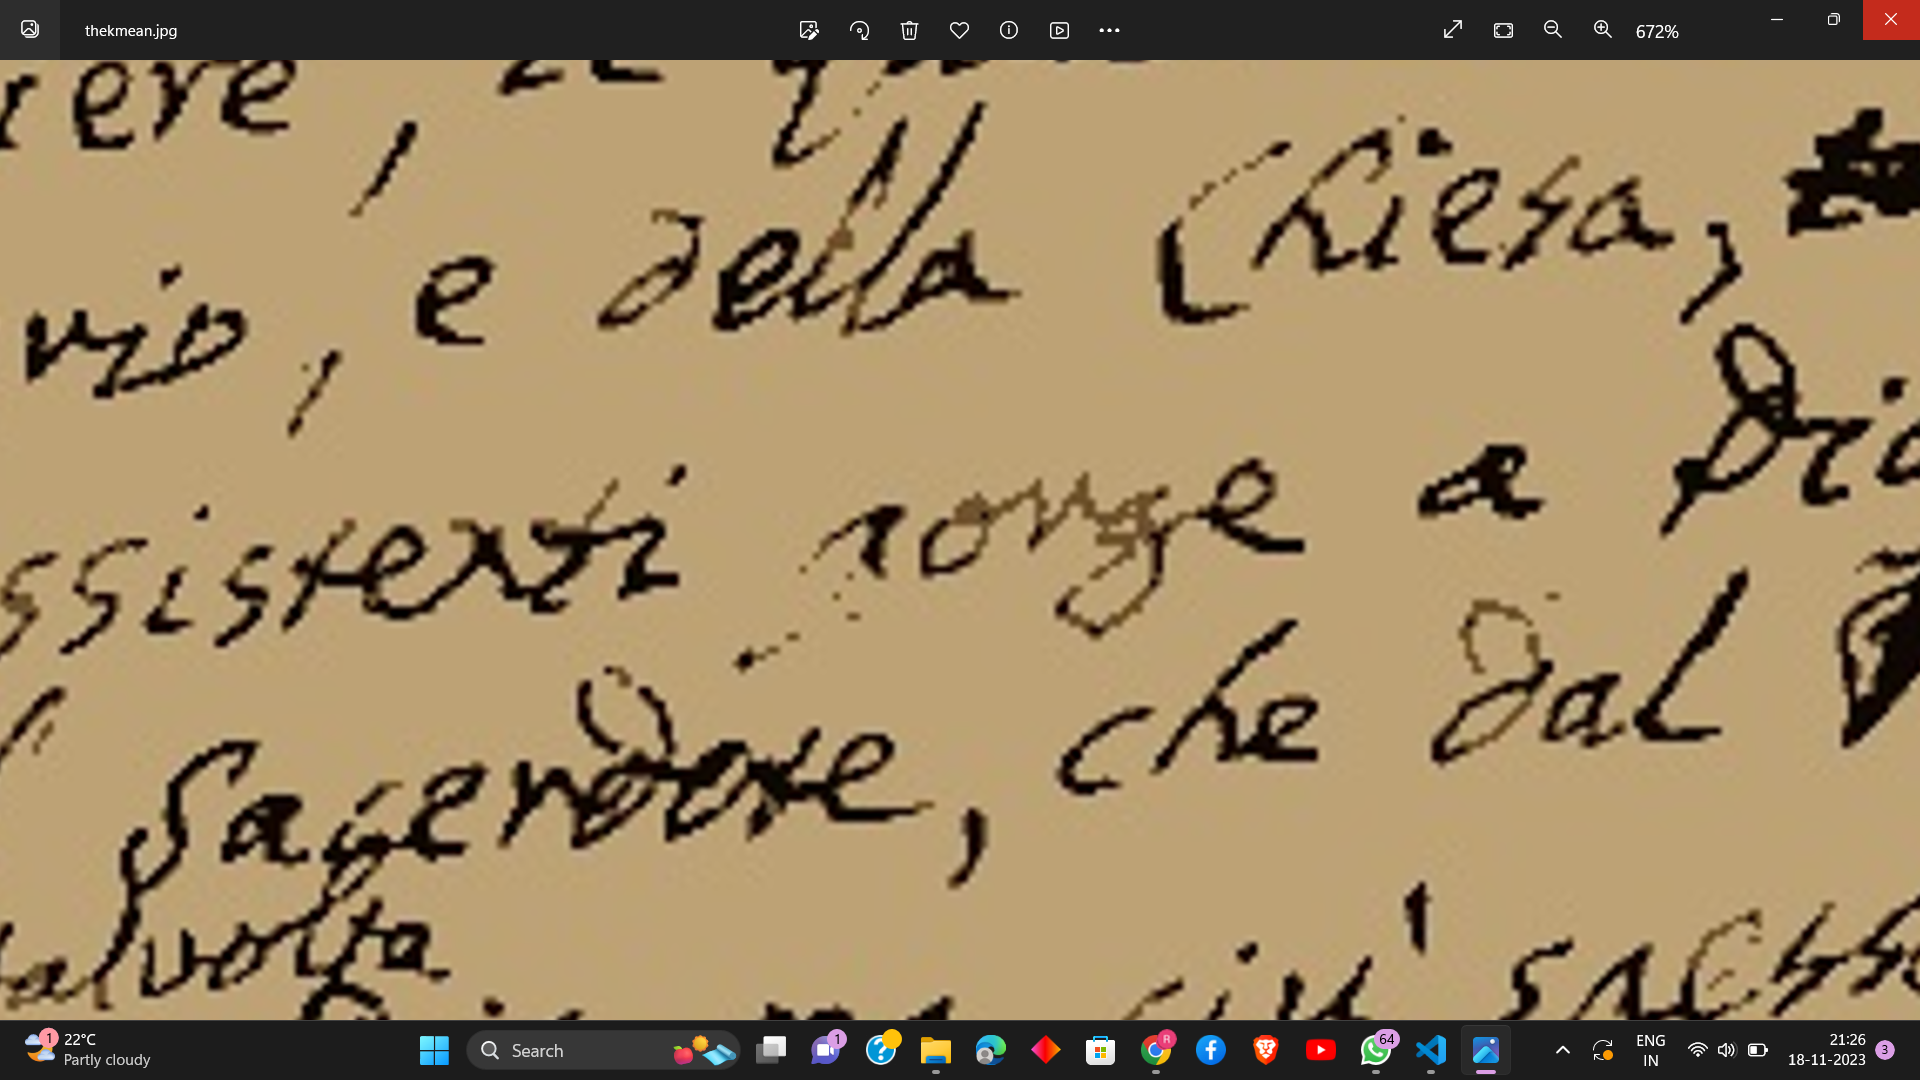 thekmean.jpg
672%
reve, il
vio, e della Chiesa,
ssistenti porge a
Sacerdote, che dal
talvolta
più
1
22°C
Partly cloudy
Search
1
R
64
ENG
IN
21:26
18-11-2023
3